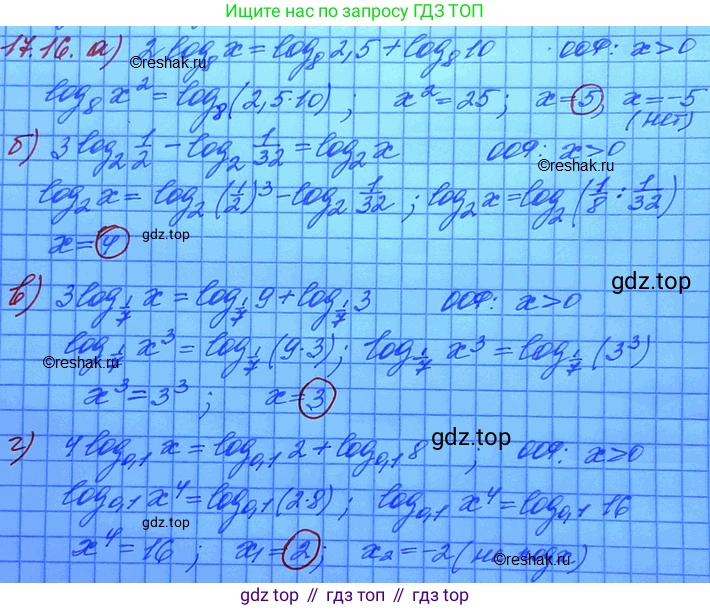 Ищите нас по запросу ГДЗ ТОП
17.16. а) 2 log₈ x = log₈ 2,5 + log₈ 10 ООФ: x>0
©reshak.ru ©reshak.ru
log₈ x² = log₈ (2,5·10) ; x² = 25 ; x = 5, x = -5
(нет)
б) 3 log₂ 1/2 - log₂ 1/32 = log₂ x ООФ: x>0
©reshak.ru
log₂ x = log₂ (1/2)³ - log₂ 1/32 ; log₂ x = log₂ (1/8 : 1/32)
x = 4 gdz.top
gdz.top
в) 3 log_1/7 x = log_1/7 9 + log_1/7 3 ООФ: x>0
log_1/7 x³ = log_1/7 (9·3) ; log_1/7 x³ = log_1/7 (3³)
©reshak.ru
x³ = 3³ ; x = 3
г) 4 log₀,₁ x = log₀,₁ 2 + log₀,₁ 8 ; ООФ: x>0
gdz.top
log₀,₁ x⁴ = log₀,₁ (2·8) ; log₀,₁ x⁴ = log₀,₁ 16
gdz.top
x⁴ = 16 ; x₁ = 2 ; x₂ = -2 (не подх)
©reshak.ru
gdz top // гдз топ // gdz.top